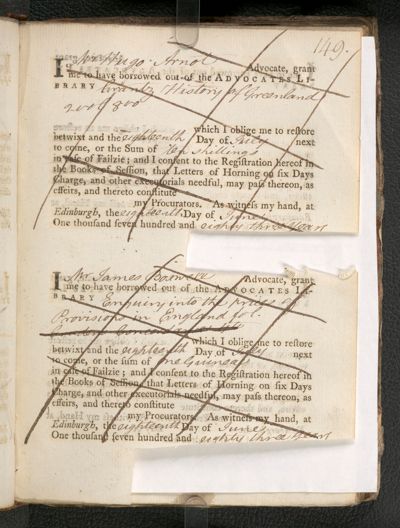 149.
I Mr Hugo Arnot Advocate, grant
me to have borrowed out of the ADVOCATES LI-
BRARY Crantz History of Greenland
2 vol 8vo
which I oblige me to restore
betwixt and the eighteenth Day of July next
to come, or the Sum of Ten Shillings
in case of Failzie; and I consent to the Registration hereof in
the Books of Session, that Letters of Horning on six Days
Charge, and other executorials needful, may pass thereon, as
effeirs, and thereto constitute
my Procurators. As witness my hand, at
Edinburgh, the eighteenth Day of June
One thousand seven hundred and eighty three Years
I Mr James Boswell Advocate, grant
me to have borrowed out of the ADVOCATES LI-
BRARY Enquiry into the prices of
Provisions in England fol.
which I oblige me to restore
betwixt and the eighteenth Day of July next
to come, or the sum of one Guinea
in case of Failzie; and I consent to the Registration hereof in
the Books of Session, that Letters of Horning on six Days
Charge, and other executorials needful, may pass thereon, as
effeirs, and thereto constitute
my Procurators. As witness my hand, at
Edinburgh, the eighteenth Day of June
One thousand seven hundred and eighty three Years